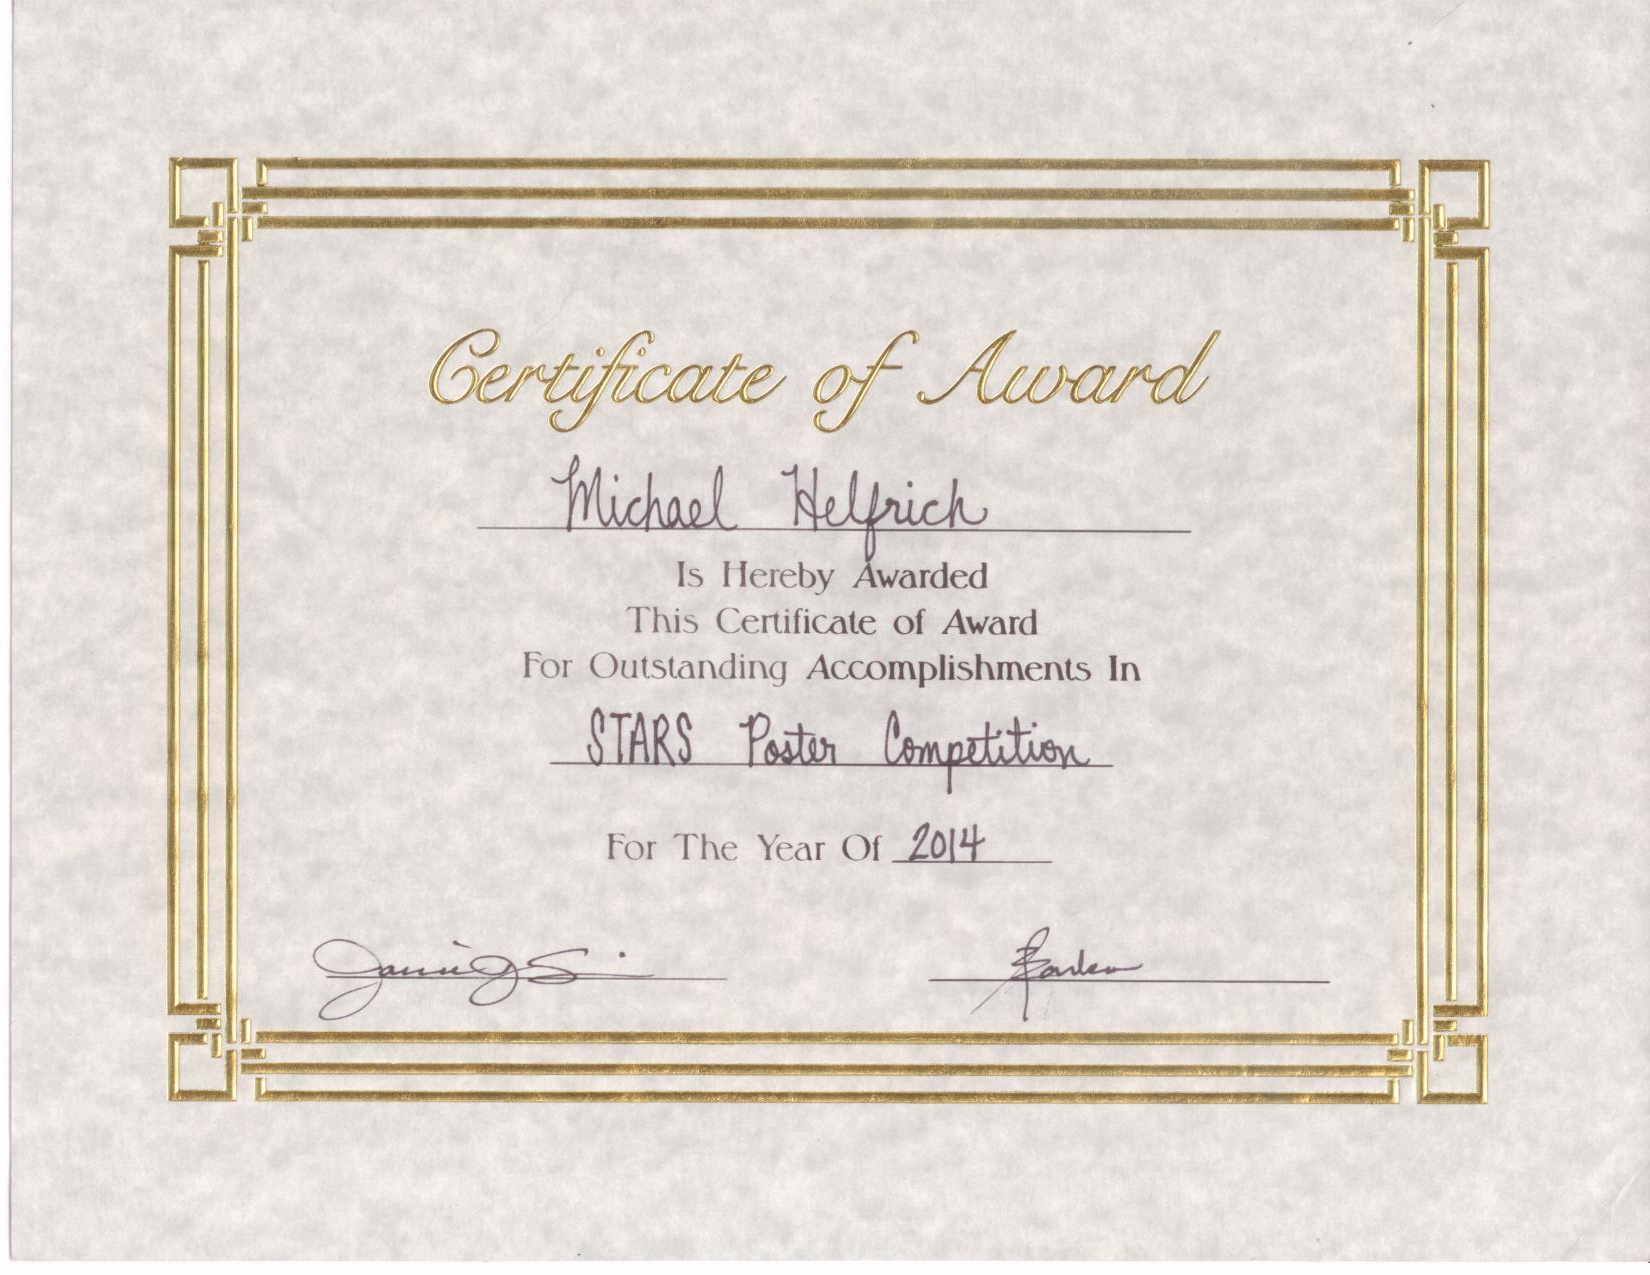 Certificate of Award
Michael Helfrich
Is Hereby Awarded
This Certificate of Award
For Outstanding Accomplishments In
STARS Poster Competition
For The Year Of 2014